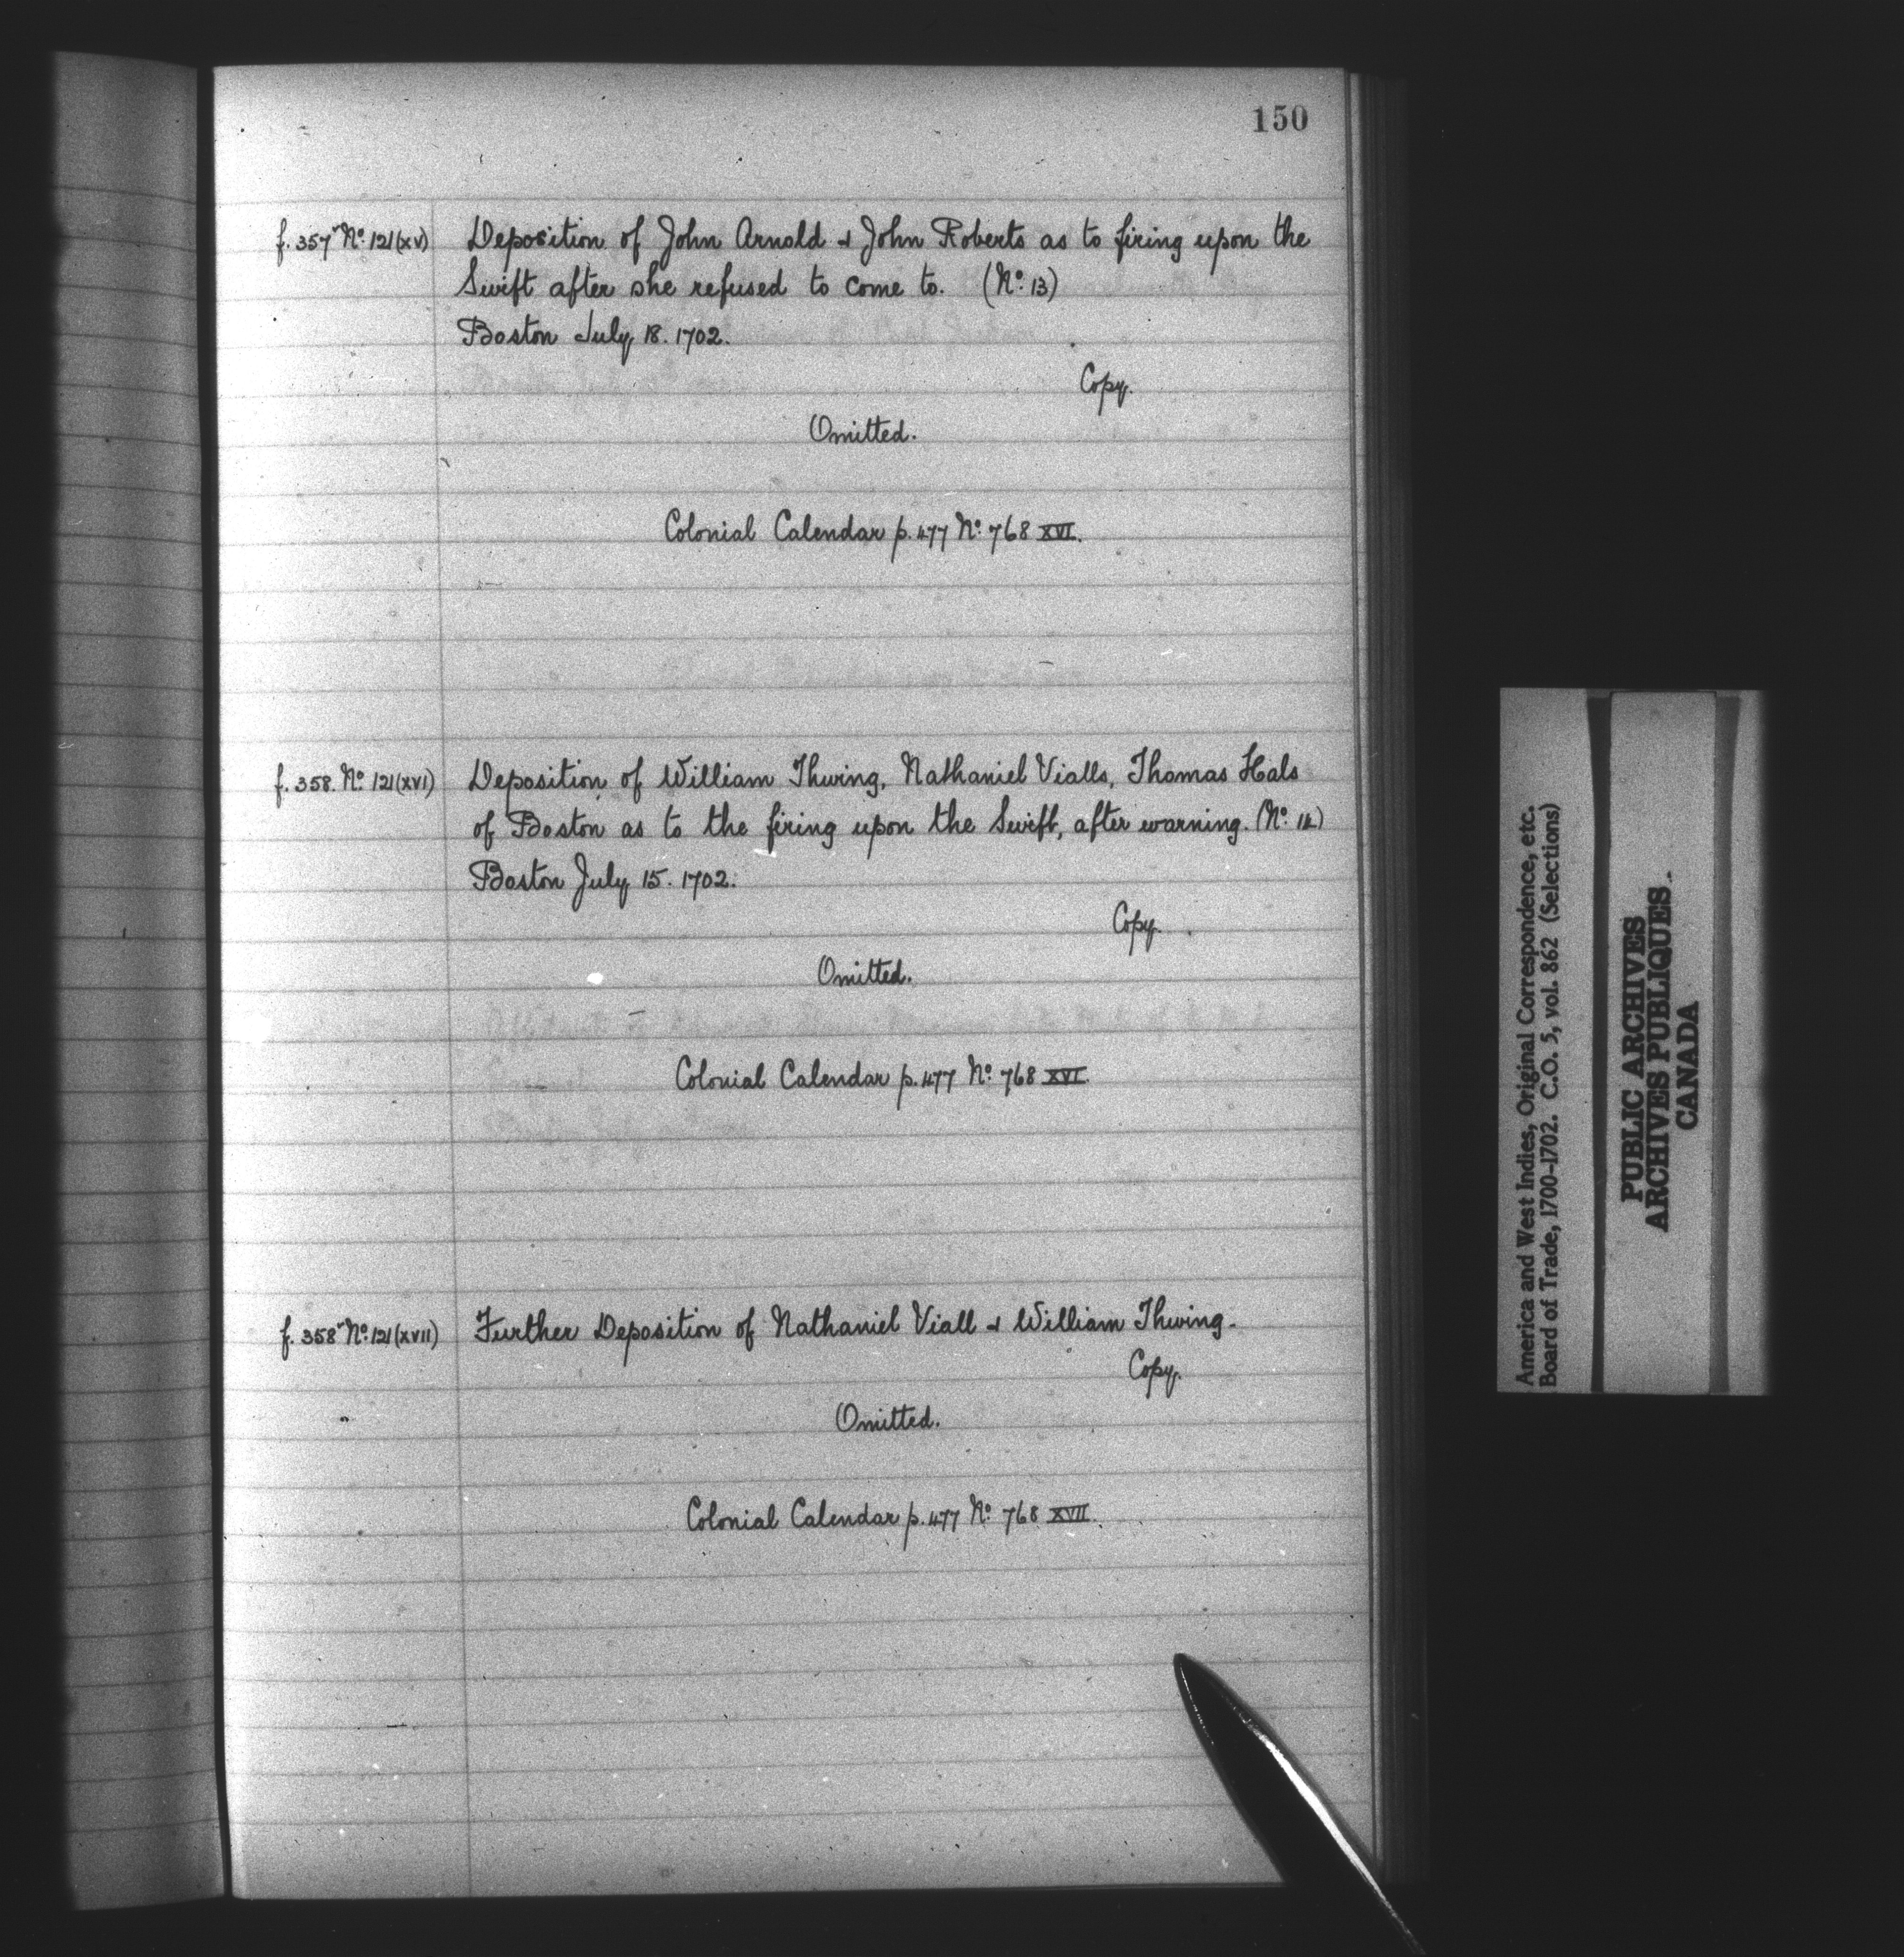 150
f. 357v No. 121(xv) Deposition of John Arnold & John Roberts as to firing upon the
Swift after she refused to come to. (No. 13)
Boston July 18. 1702.
Copy.
Omitted.
Colonial Calendar p. 477 No. 768 XVI.
f. 358. No. 121(xvi) Deposition of William Thwing, Nathaniel Vialls, Thomas Hals
of Boston as to the firing upon the Swift, after warning. (No. 14)
Boston July 15. 1702.
Copy.
Omitted.
Colonial Calendar p. 477 No. 768 XVI.
f. 358v No. 121(xvii) Further Deposition of Nathaniel Viall & William Thwing.
Copy.
Omitted.
Colonial Calendar p. 477 No. 768 XVII.
America and West Indies, Original Correspondence, etc.
Board of Trade, 1700-1702. C.O. 5, vol. 862 (Selections)
PUBLIC ARCHIVES
ARCHIVES PUBLIQUES
CANADA